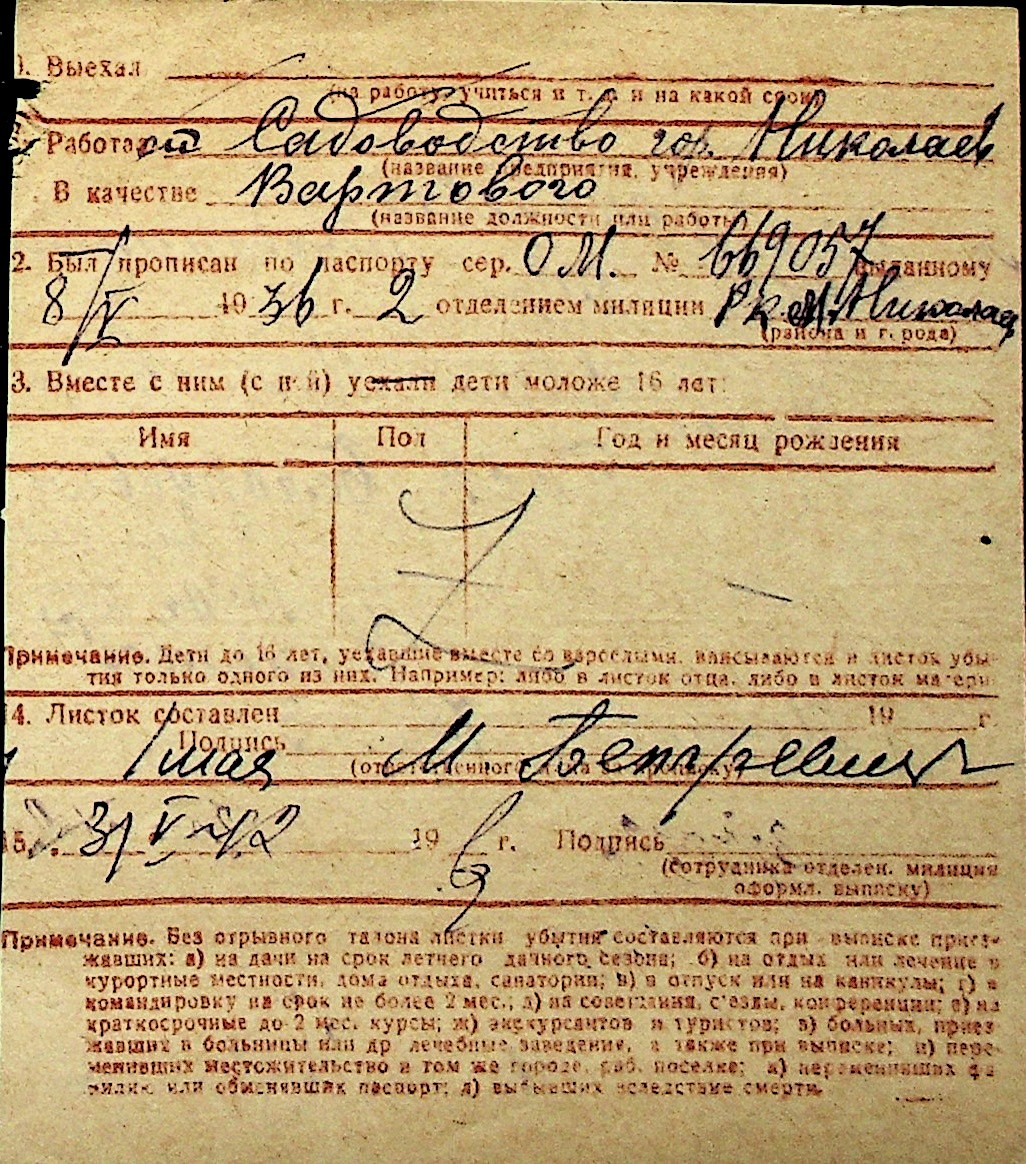 0. Выехал
(на работу, учиться и т. д. и на какой срок)
Работал Садоводство гор. Николаев
(название предприятия, учреждения)
В качестве Вартового
(название должности или работы)
2. Был прописан по паспорту сер. О.М. № 669057 выданному
8/IV 1936 г. 2 отделением милиции Р.К.М. Николаев
(района и города)
3. Вместе с ним (с ней) уехали дети моложе 16 лет:
Имя Пол Год и месяц рождения
Примечание. Дети до 16 лет, уехавшие вместе со взрослыми, вписываются в листок убы-
тия только одного из них. Например: либо в листок отца, либо в листок матери
14. Листок составлен 19 г.
Подпись
1 мая М
(ответственного лица за прописку)
15. 31 V 42 19 г. Подпись
(сотрудника отделен. милиции
оформл. выписку)
Примечание. Без отрывного талона листки убытия составляются при выписке приез-
жавших: а) на дачи на срок летнего дачного сезона; б) на отдых или лечение в
курортные местности, дома отдыха, санатории; в) в отпуск или на каникулы; г) в
командировку на срок не более 2 мес.; д) на совещания, с'езды, конференции; е) на
краткосрочные до 2 мес. курсы; ж) экскурсантов и туристов; з) больных, приез-
жавших в больницы или др лечебные заведения, а также при выписке; и) пере-
менивших местожительство в том же городе, раб. поселке; к) переменивших фа-
милию или обменявших паспорт; л) выбывших вследствие смерти.